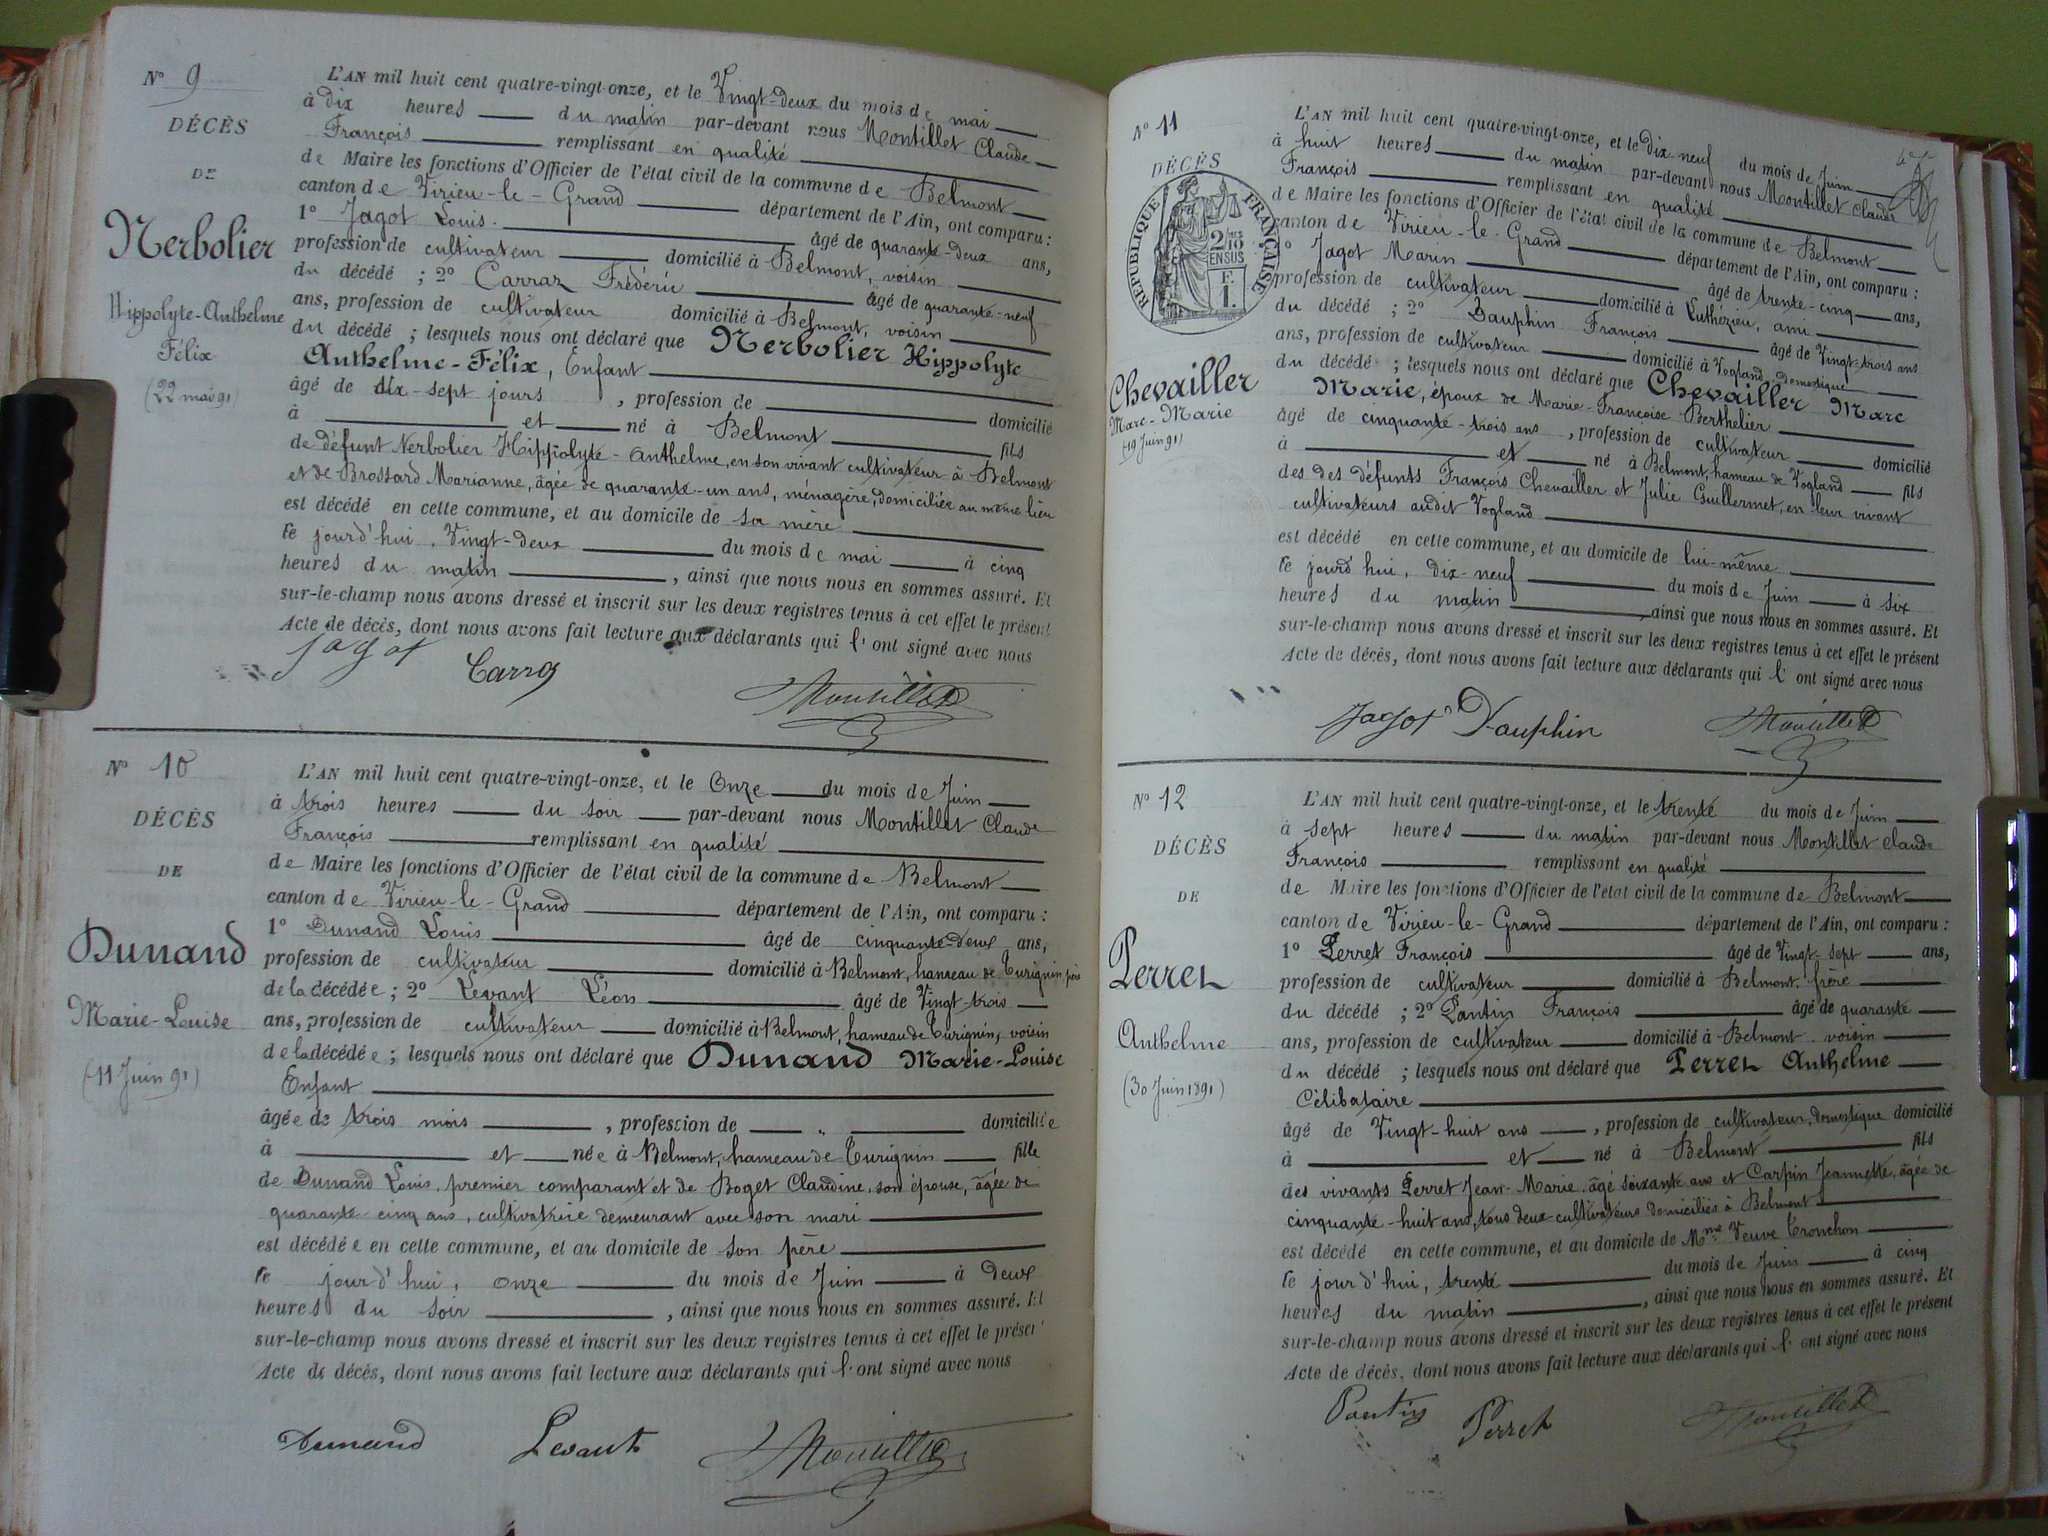 N° 9
DÉCÈS
DE
Nerbolier
Hippolyte-Anthelme
Félix
(22 mai 91)
L'AN mil huit cent quatre-vingt-onze, et le Vingt-deux du mois de mai
à dix heures du matin par-devant nous Montillet Claude
François remplissant en qualité
de Maire les fonctions d'Officier de l'état civil de la commune de Belmont
canton de Virieu-le-Grand département de l'Ain, ont comparu :
1° Jagot Louis. âgé de quarante-deux ans,
profession de cultivateur domicilié à Belmont, voisin
du décédé ; 2° Carraz Frédéric âgé de quarante-neuf
ans, profession de cultivateur domicilié à Belmont, voisin
du décédé ; lesquels nous ont déclaré que Nerbolier Hippolyte
Anthelme-Félix, Enfant
âgé de dix-sept jours , profession de domicilié
à et né à Belmont fils
de défunt Nerbolier Hippolyte-Anthelme, en son vivant cultivateur à Belmont
et de Brossard Marianne, âgée de quarante-un ans, ménagère, domiciliée au même lieu
est décédé en cette commune, et au domicile de sa mère
le jourd'hui, Vingt-deux du mois de mai à cinq
heures du matin , ainsi que nous nous en sommes assuré. Et
sur-le-champ nous avons dressé et inscrit sur les deux registres tenus à cet effet le présent
Acte de décès, dont nous avons fait lecture aux déclarants qui l'ont signé avec nous
Jagot Carraz Montillet
N° 10
DÉCÈS
DE
Dunand
Marie-Louise
(11 Juin 91)
L'AN mil huit cent quatre-vingt-onze, et le Onze du mois de Juin
à trois heures du soir par-devant nous Montillet Claude
François remplissant en qualité
de Maire les fonctions d'Officier de l'état civil de la commune de Belmont
canton de Virieu-le-Grand département de l'Ain, ont comparu :
1° Dunand Louis âgé de cinquante-deux ans,
profession de cultivateur domicilié à Belmont, hameau de Turignin père
de la décédée ; 2° Levant Léon âgé de Vingt-trois
ans, profession de cultivateur domicilié à Belmont, hameau de Turignin, voisin
de la décédée ; lesquels nous ont déclaré que Dunand Marie-Louise
Enfant
âgée de trois mois , profession de " domiciliée
à et née à Belmont, hameau de Turignin fille
de Dunand Louis, premier comparant et de Boget Claudine, son épouse, âgée de
quarante-cinq ans, cultivatrice demeurant avec son mari
est décédée en cette commune, et au domicile de son père
le jourd'hui, onze du mois de Juin à deux
heures du soir , ainsi que nous nous en sommes assuré. Et
sur-le-champ nous avons dressé et inscrit sur les deux registres tenus à cet effet le présent
Acte de décès, dont nous avons fait lecture aux déclarants qui l'ont signé avec nous
Dunand Levant Montillet
N° 11
DÉCÈS
RÉPUBLIQUE FRANÇAISE
2/10 EN SUS
F. 1.
Chevailler
Marc-Marie
(19 Juin 91)
L'AN mil huit cent quatre-vingt-onze, et le dix-neuf du mois de Juin
à huit heures du matin par-devant nous Montillet Claude
François remplissant en qualité
de Maire les fonctions d'Officier de l'état civil de la commune de Belmont
canton de Virieu-le-Grand département de l'Ain, ont comparu :
1° Jagot Marin âgé de trente-cinq ans,
profession de cultivateur domicilié à Luthézieu, ami
du décédé ; 2° Dauphin François âgé de Vingt-trois ans
ans, profession de cultivateur domicilié à Vogland, domestique
du décédé ; lesquels nous ont déclaré que Chevailler Marc
Marie, époux de Marie-Françoise Berthelier
âgé de cinquante-trois ans , profession de cultivateur domicilié
à et né à Belmont, hameau de Vogland fils
des des défunts François Chevailler et Julie Guillermet, en leur vivant
cultivateurs audit Vogland
est décédé en cette commune, et au domicile de lui-même
le jourd'hui, dix-neuf du mois de Juin à six
heures du matin , ainsi que nous nous en sommes assuré. Et
sur-le-champ nous avons dressé et inscrit sur les deux registres tenus à cet effet le présent
Acte de décès, dont nous avons fait lecture aux déclarants qui l'ont signé avec nous
Jagot Dauphin Montillet
N° 12
DÉCÈS
DE
Perret
Anthelme
(30 Juin 1891)
L'AN mil huit cent quatre-vingt-onze, et le trente du mois de Juin
à sept heures du matin par-devant nous Montillet Claude
François remplissant en qualité
de Maire les fonctions d'Officier de l'état civil de la commune de Belmont
canton de Virieu-le-Grand département de l'Ain, ont comparu :
1° Perret François âgé de Vingt-sept ans,
profession de cultivateur domicilié à Belmont, frère
du décédé ; 2° Pantin François âgé de quarante
ans, profession de cultivateur domicilié à Belmont voisin
du décédé ; lesquels nous ont déclaré que Perret Anthelme
Célibataire
âgé de Vingt-huit ans , profession de cultivateur, domestique domicilié
à et né à Belmont fils
des vivants Perret Jean-Marie, âgé soixante ans et Carpin Jeannette, âgée de
cinquante-huit ans, tous deux cultivateurs domiciliés à Belmont
est décédé en cette commune, et au domicile de Mme Veuve Tronchon
le jourd'hui, trente du mois de Juin à cinq
heures du matin , ainsi que nous nous en sommes assuré. Et
sur-le-champ nous avons dressé et inscrit sur les deux registres tenus à cet effet le présent
Acte de décès, dont nous avons fait lecture aux déclarants qui l'ont signé avec nous
Pantin Perret Montillet